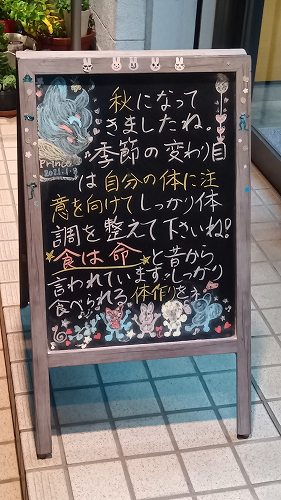 秋になって
きましたね。
季節の変わり目
は自分の体に注
意を向けてしっかり体
調を整えて下さいね!
食は命と昔から
言われています。しっかり
食べられる体作りを
Prince